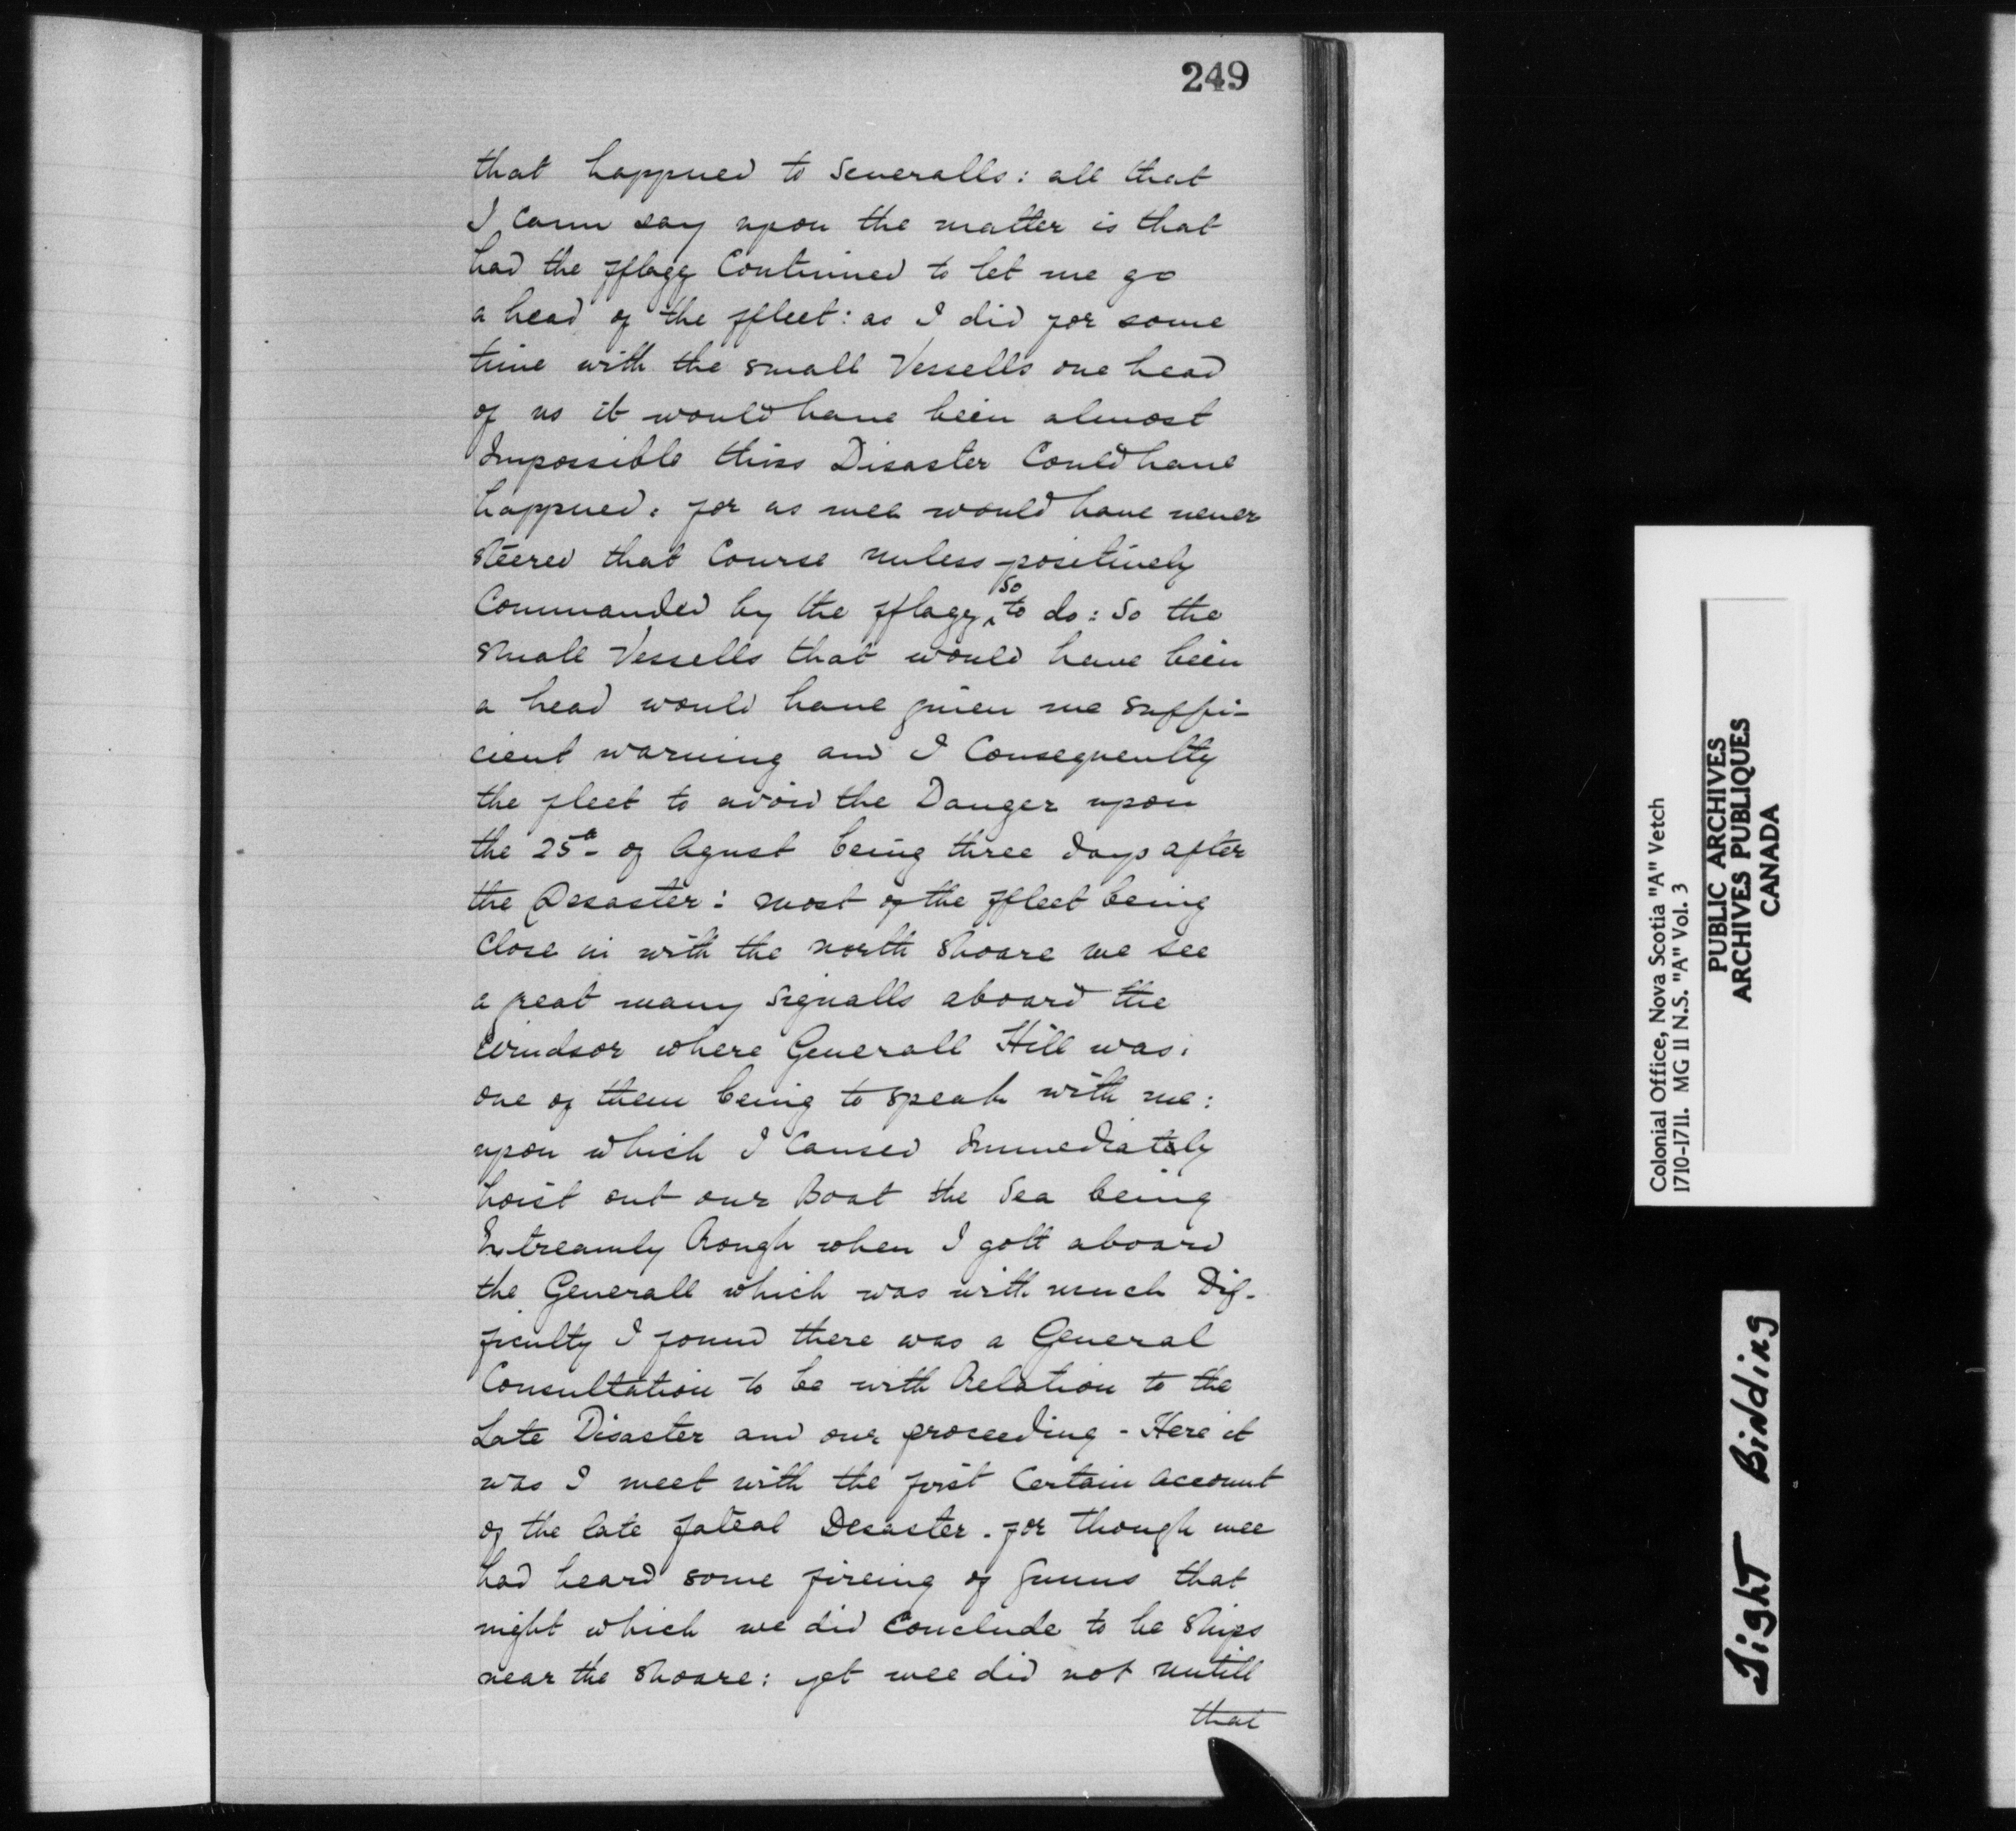 249
that happned to Severalls: all that
I Cann say upon the matter is that
had the fflagg Continued to let me go
a head of the ffleet: as I did for some
time with the small Vessells one head
of us it would have been almost
Impossible thiss Disaster Could have
happned: for as wee would have never
steered that Course unless positively
Commanded by the fflagg so to do: So the
small Vessells that would have been
a head would have given me suffi-
cient warning and I Consequently
the fleet to avoid the Danger upon
the 25d of Agust being three days after
the Desaster: most of the ffleet being
Close in with the north shoare we see
a great many Signalls aboard the
Windsor where Generall Hill was:
one of them being to speak with me:
upon which I Caused Immediately
hoist out our Boat the Sea being
Extreamly Rough when I gott aboard
the Generall which was with much Dif-
ficulty I found there was a General
Consultation to be with Relation to the
Late Disaster and our proceeding - Here it
was I meet with the first Certain account
of the late fateal Desaster. for though wee
had heard some fireing of Gunns that
night which we did Conclude to be Ships
near the Shoare: yet wee did not untill
that
Colonial Office, Nova Scotia "A" Vetch
1710-1711. MG 11 N.S. "A" Vol. 3
PUBLIC ARCHIVES
ARCHIVES PUBLIQUES
CANADA
Tight Binding